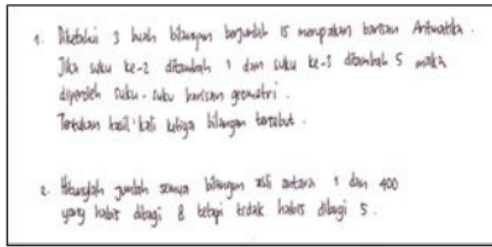 1. Diketahui 3 buah bilangan berjumlah 15 merupakan barisan Aritmatika.
Jika suku ke-2 ditambah 1 dan suku ke-3 ditambah 5 maka
diperoleh suku-suku barisan geometri.
Tentukan hasil kali ketiga bilangan tersebut.
2. Hitunglah jumlah semua bilangan asli antara 1 dan 400
yang habis dibagi 8 tetapi tidak habis dibagi 5.